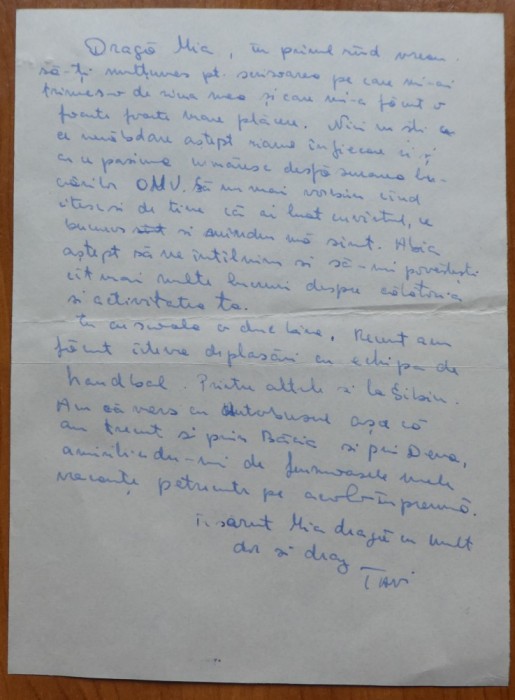 Dragă Mia, în primul rînd vreau
să-ți mulțumesc pt. scrisoarea pe care mi-ai
trimes-o de ziua mea și care mi-a făcut o
foarte foarte mare plăcere. Nici nu știi cu
ce nerăbdare aștept ziarul în fiecare zi și
cu ce pasiune urmăresc desfășurarea lu-
crărilor ONU. Să nu mai vorbim cînd
citesc și de tine că ai luat cuvîntul, ce
bucuros și mîndru mă simt. Abia
aștept să ne întîlnim și să-mi povestești
cît mai multe lucruri despre călătoria
și activitatea ta.
Eu cu școala o duc bine, Recent am
făcut cîteva deplasări cu echipa de
handbal. Printre altele și la Sibiu.
Am că vers cu autobusul așa că
am trecut și prin Băcia și prin Deva,
amintindu-mi de frumoasele mele
vacanțe petrecute pe acolo împreună.
Te sărut Mia dragă cu mult
dor și drag
Tavi